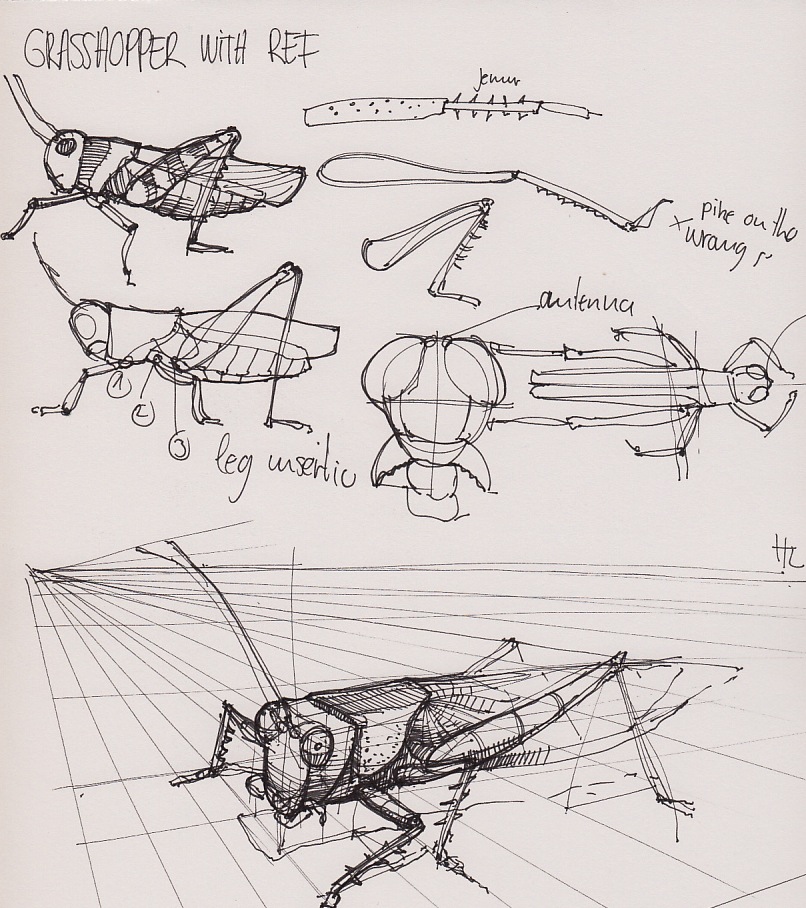 GRASSHOPPER WITH REF
femur
pike on the
wrong
antenna
1
2
3
leg insertio
HL